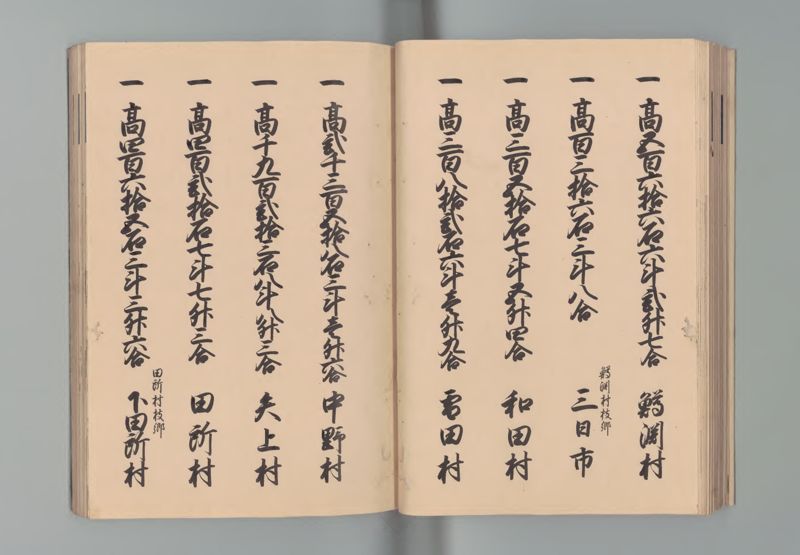 一 高五百六拾六石六斗貳升七合 鱒渕村
一 高百三拾六石三斗八合 鱒渕村枝郷 三日市
一 高三百五拾石七斗五升四合 和田村
一 高三百八拾貳石六斗壱升九合 雪田村
一 高貳千三百五拾八石三斗壱升六合 中野村
一 高千九百貳拾三石八斗八升三合 矢上村
一 高四百貳拾石七斗七升三合 田所村
一 高四百六拾五石三斗三升六合 田所村枝郷 下田所村